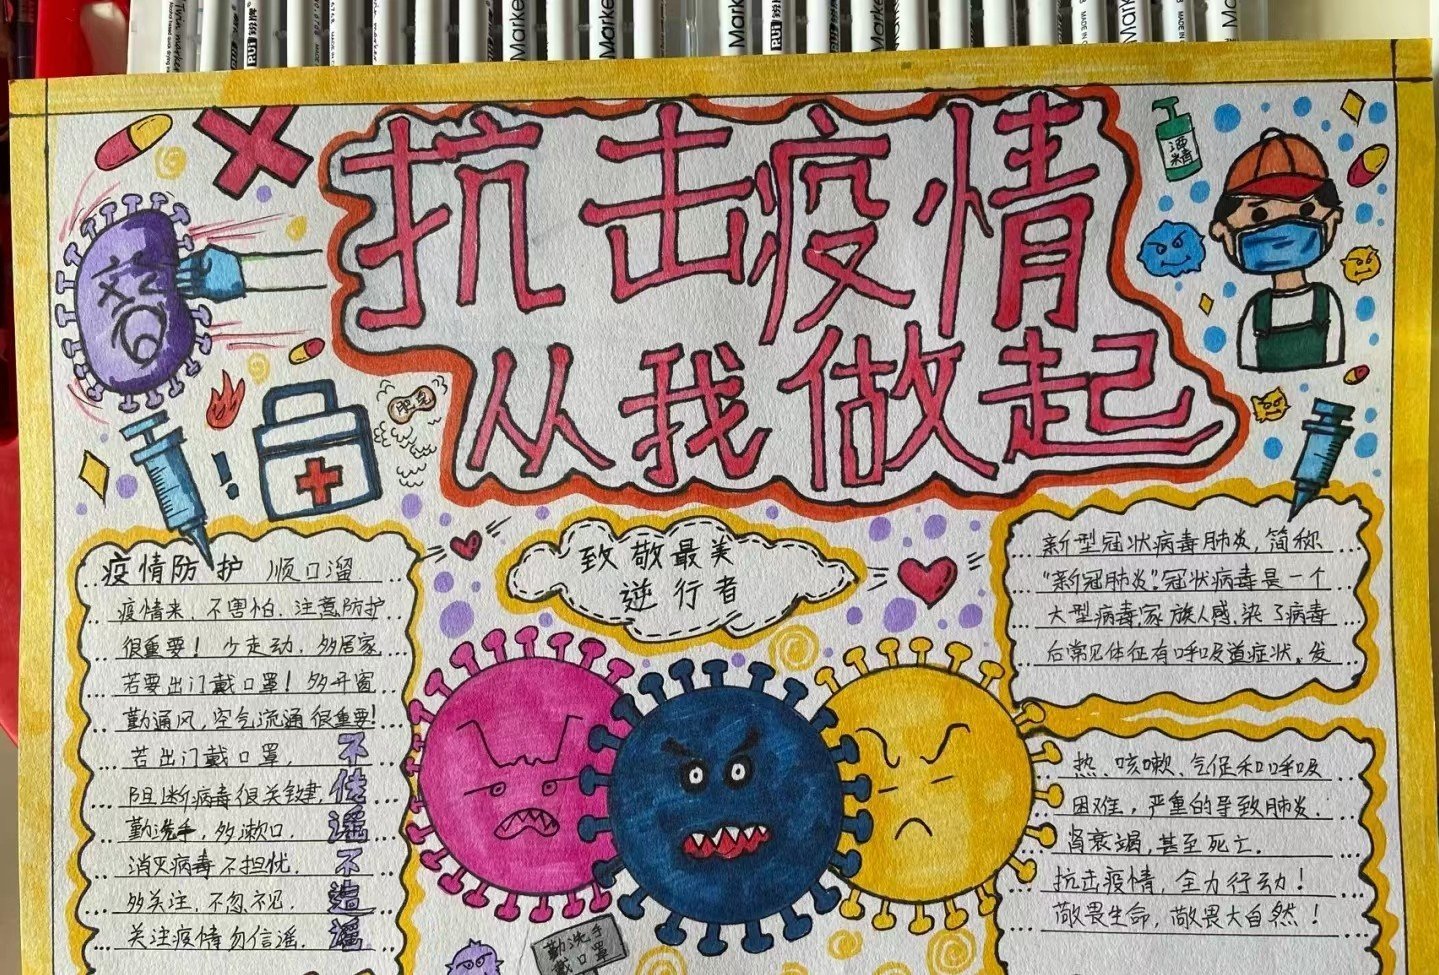 Twin marker
Marker
RUI
Marker
Marker
Mark
RUI
Marker
Marker
Mark
MADE IN
抗击疫情
从我做起
酒
精
肥皂
致敬最美
逆行者
疫情防护 顺口溜
疫情来，不害怕．注意防护
很重要！少走动，多居家
若要出门戴口罩！多开窗
勤通风，空气流通很重要！
若出门戴口罩，
阻断病毒很关键，
勤洗手，多漱口．
消灭病毒不担忧．
多关注，不忽视．
关注疫情勿信谣．
不
传
谣
不
造
谣
新型冠状病毒肺炎，简称
“新冠肺炎”．冠状病毒是一个
大型病毒家族人感染了病毒
后常见体征有呼吸道症状、发
热、咳嗽、气促和呼吸
困难，严重的导致肺炎．
肾衰竭，甚至死亡．
抗击疫情，全力行动！
敬畏生命，敬畏大自然！
勤洗手
戴口罩